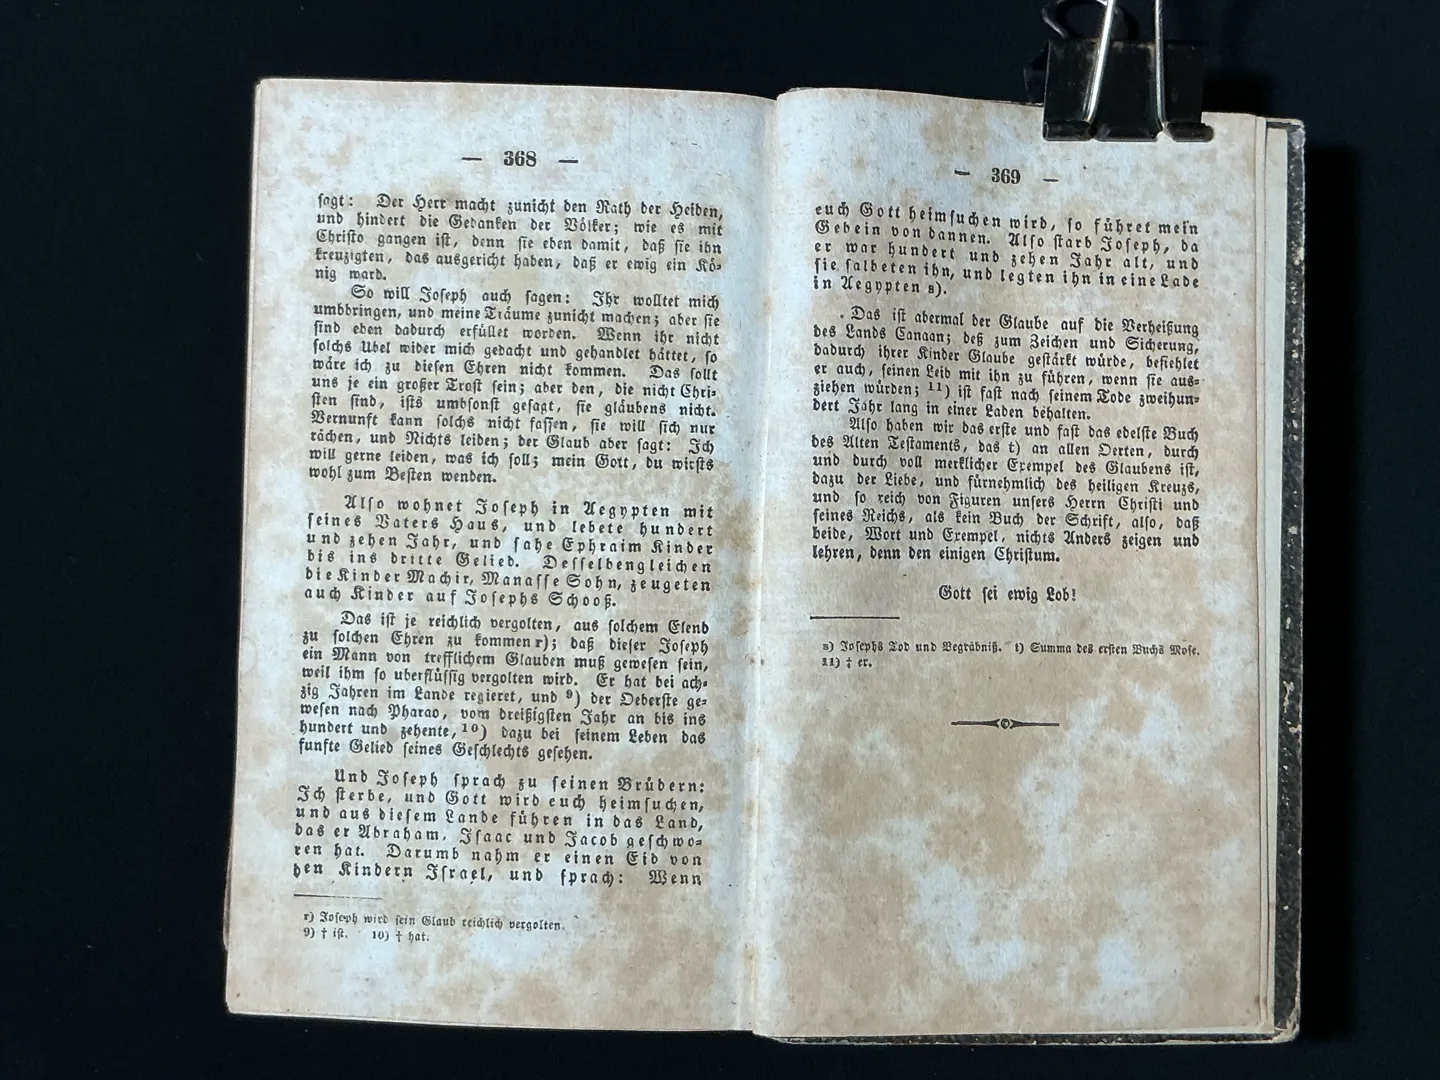 — 368 —
sagt: Der Herr macht zunicht den Rath der Heiden,
und hindert die Gedanken der Völker; wie es mit
Christo gangen ist, denn sie eben damit, daß sie ihn
kreuzigten, das ausgericht haben, daß er ewig ein Kö-
nig ward.
So will Joseph auch sagen: Ihr wolltet mich
umbbringen, und meine Träume zunicht machen; aber sie
sind eben dadurch erfüllet worden. Wenn ihr nicht
solchs Ubel wider mich gedacht und gehandlet hättet, so
wäre ich zu diesen Ehren nicht kommen. Das sollt
uns je ein großer Trost sein; aber den, die nicht Chri-
sten sind, ists umbsonst gesagt, sie gläubens nicht.
Vernunft kann solchs nicht fassen, sie will sich nur
rächen, und Nichts leiden; der Glaub aber sagt: Ich
will gerne leiden, was ich soll; mein Gott, du wirsts
wohl zum Besten wenden.
Also wohnet Joseph in Aegypten mit
seines Vaters Haus, und lebete hundert
und zehen Jahr, und sahe Ephraim Kinder
bis ins dritte Gelied. Desselbengleichen
die Kinder Machir, Manasse Sohn, zeugeten
auch Kinder auf Josephs Schooß.
Das ist je reichlich vergolten, aus solchem Elend
zu solchen Ehren zu kommen r); daß dieser Joseph
ein Mann von trefflichem Glauben muß gewesen sein,
weil ihm so uberflüssig vergolten wird. Er hat bei ach-
zig Jahren im Lande regieret, und 9) der Oeberste ge-
wesen nach Pharao, vom dreißigsten Jahr an bis ins
hundert und zehente, 10) dazu bei seinem Leben das
funfte Gelied seines Geschlechts gesehen.
Und Joseph sprach zu seinen Brüdern:
Ich sterbe, und Gott wird euch heimsuchen,
und aus diesem Lande führen in das Land,
das er Abraham, Isaac und Jacob geschwo-
ren hat. Darumb nahm er einen Eid von
den Kindern Israel, und sprach: Wenn
r) Joseph wird sein Glaub reichlich vergolten.
9) † ist. 10) † hat.
— 369 —
euch Gott heimsuchen wird, so führet mein
Gebein von dannen. Also starb Joseph, da
er war hundert und zehen Jahr alt, und
sie salbeten ihn, und legten ihn in eine Lade
in Aegypten s).
Das ist abermal der Glaube auf die Verheißung
des Lands Canaan; deß zum Zeichen und Sicherung,
dadurch ihrer Kinder Glaube gestärkt würde, befiehlet
er auch, seinen Leib mit ihn zu führen, wenn sie aus-
ziehen würden; 11) ist fast nach seinem Tode zweihun-
dert Jahr lang in einer Laden behalten.
Also haben wir das erste und fast das edelste Buch
des Alten Testaments, das t) an allen Oerten, durch
und durch voll merklicher Exempel des Glaubens ist,
dazu der Liebe, und fürnehmlich des heiligen Kreuzs,
und so reich von Figuren unsers Herrn Christi und
seines Reichs, als kein Buch der Schrift, also, daß
beide, Wort und Exempel, nichts Anders zeigen und
lehren, denn den einigen Christum.
Gott sei ewig Lob!
s) Josephs Tod und Begräbniß. t) Summa des ersten Buchs Mose.
11) † er.